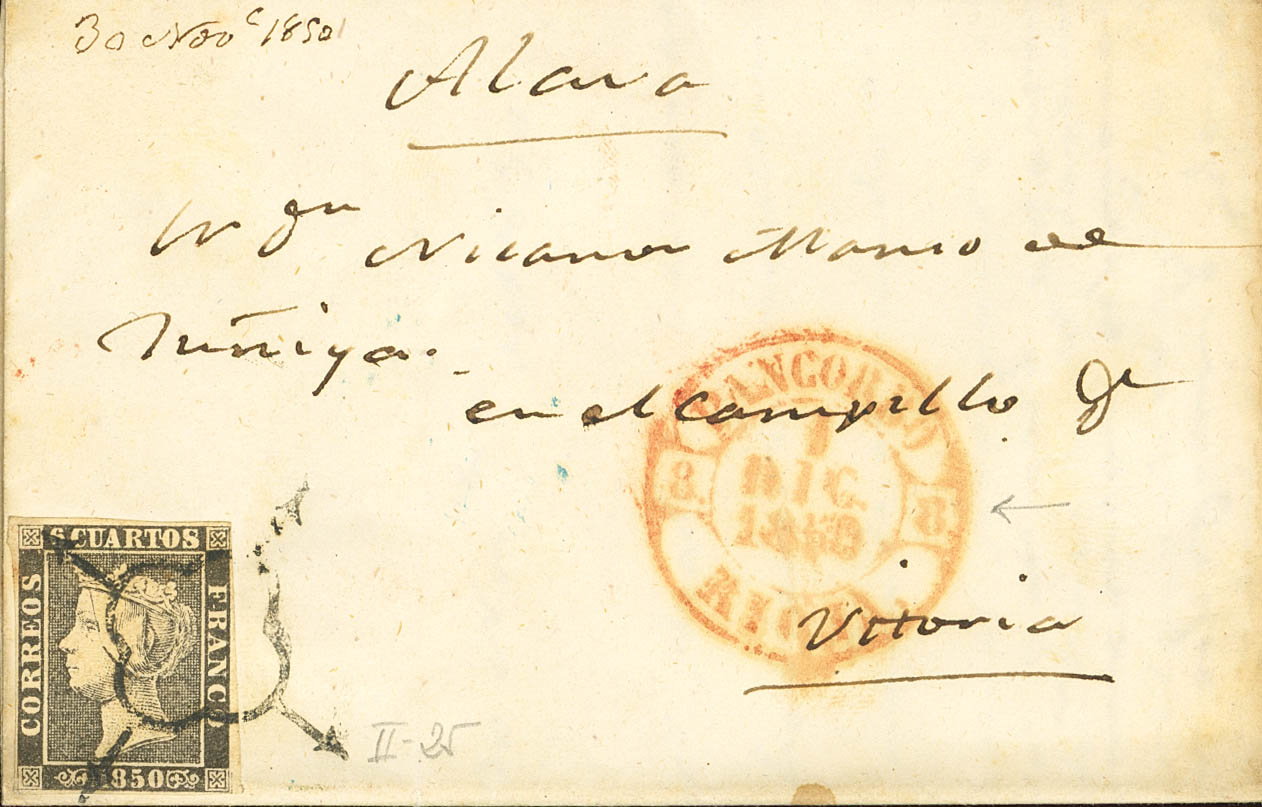 30 Nov.e 1850
Alava
Sr Dn Nicanor Manso de
Zuñiga.
en el campillo De
Vitoria
PANCORBO
8. 1 8.
DIC.
1850
RIOJA
6 CUARTOS
CORREOS
FRANCO
1850
II-25